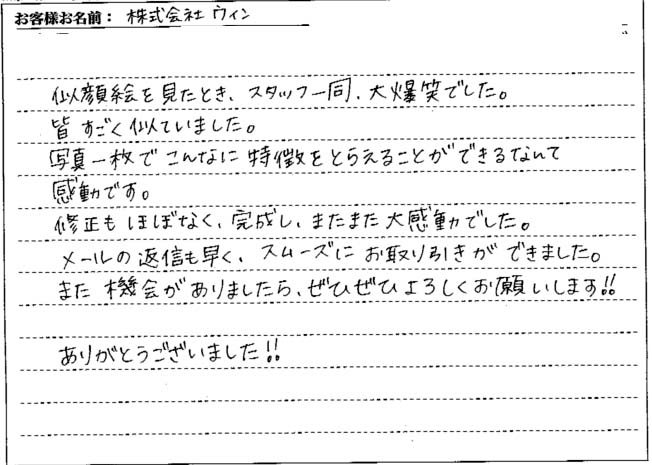 お客様お名前： 株式会社 ウィン
似顔絵を見たとき、スタッフ一同、大爆笑でした。
皆すごく似ていました。
写真一枚でこんなに特徴をとらえることができるなんて
感動です。
修正もほぼなく、完成し、またまた大感動でした。
メールの返信も早く、スムーズにお取り引きができました。
また機会がありましたら、ぜひぜひよろしくお願いします!!
ありがとうございました!!